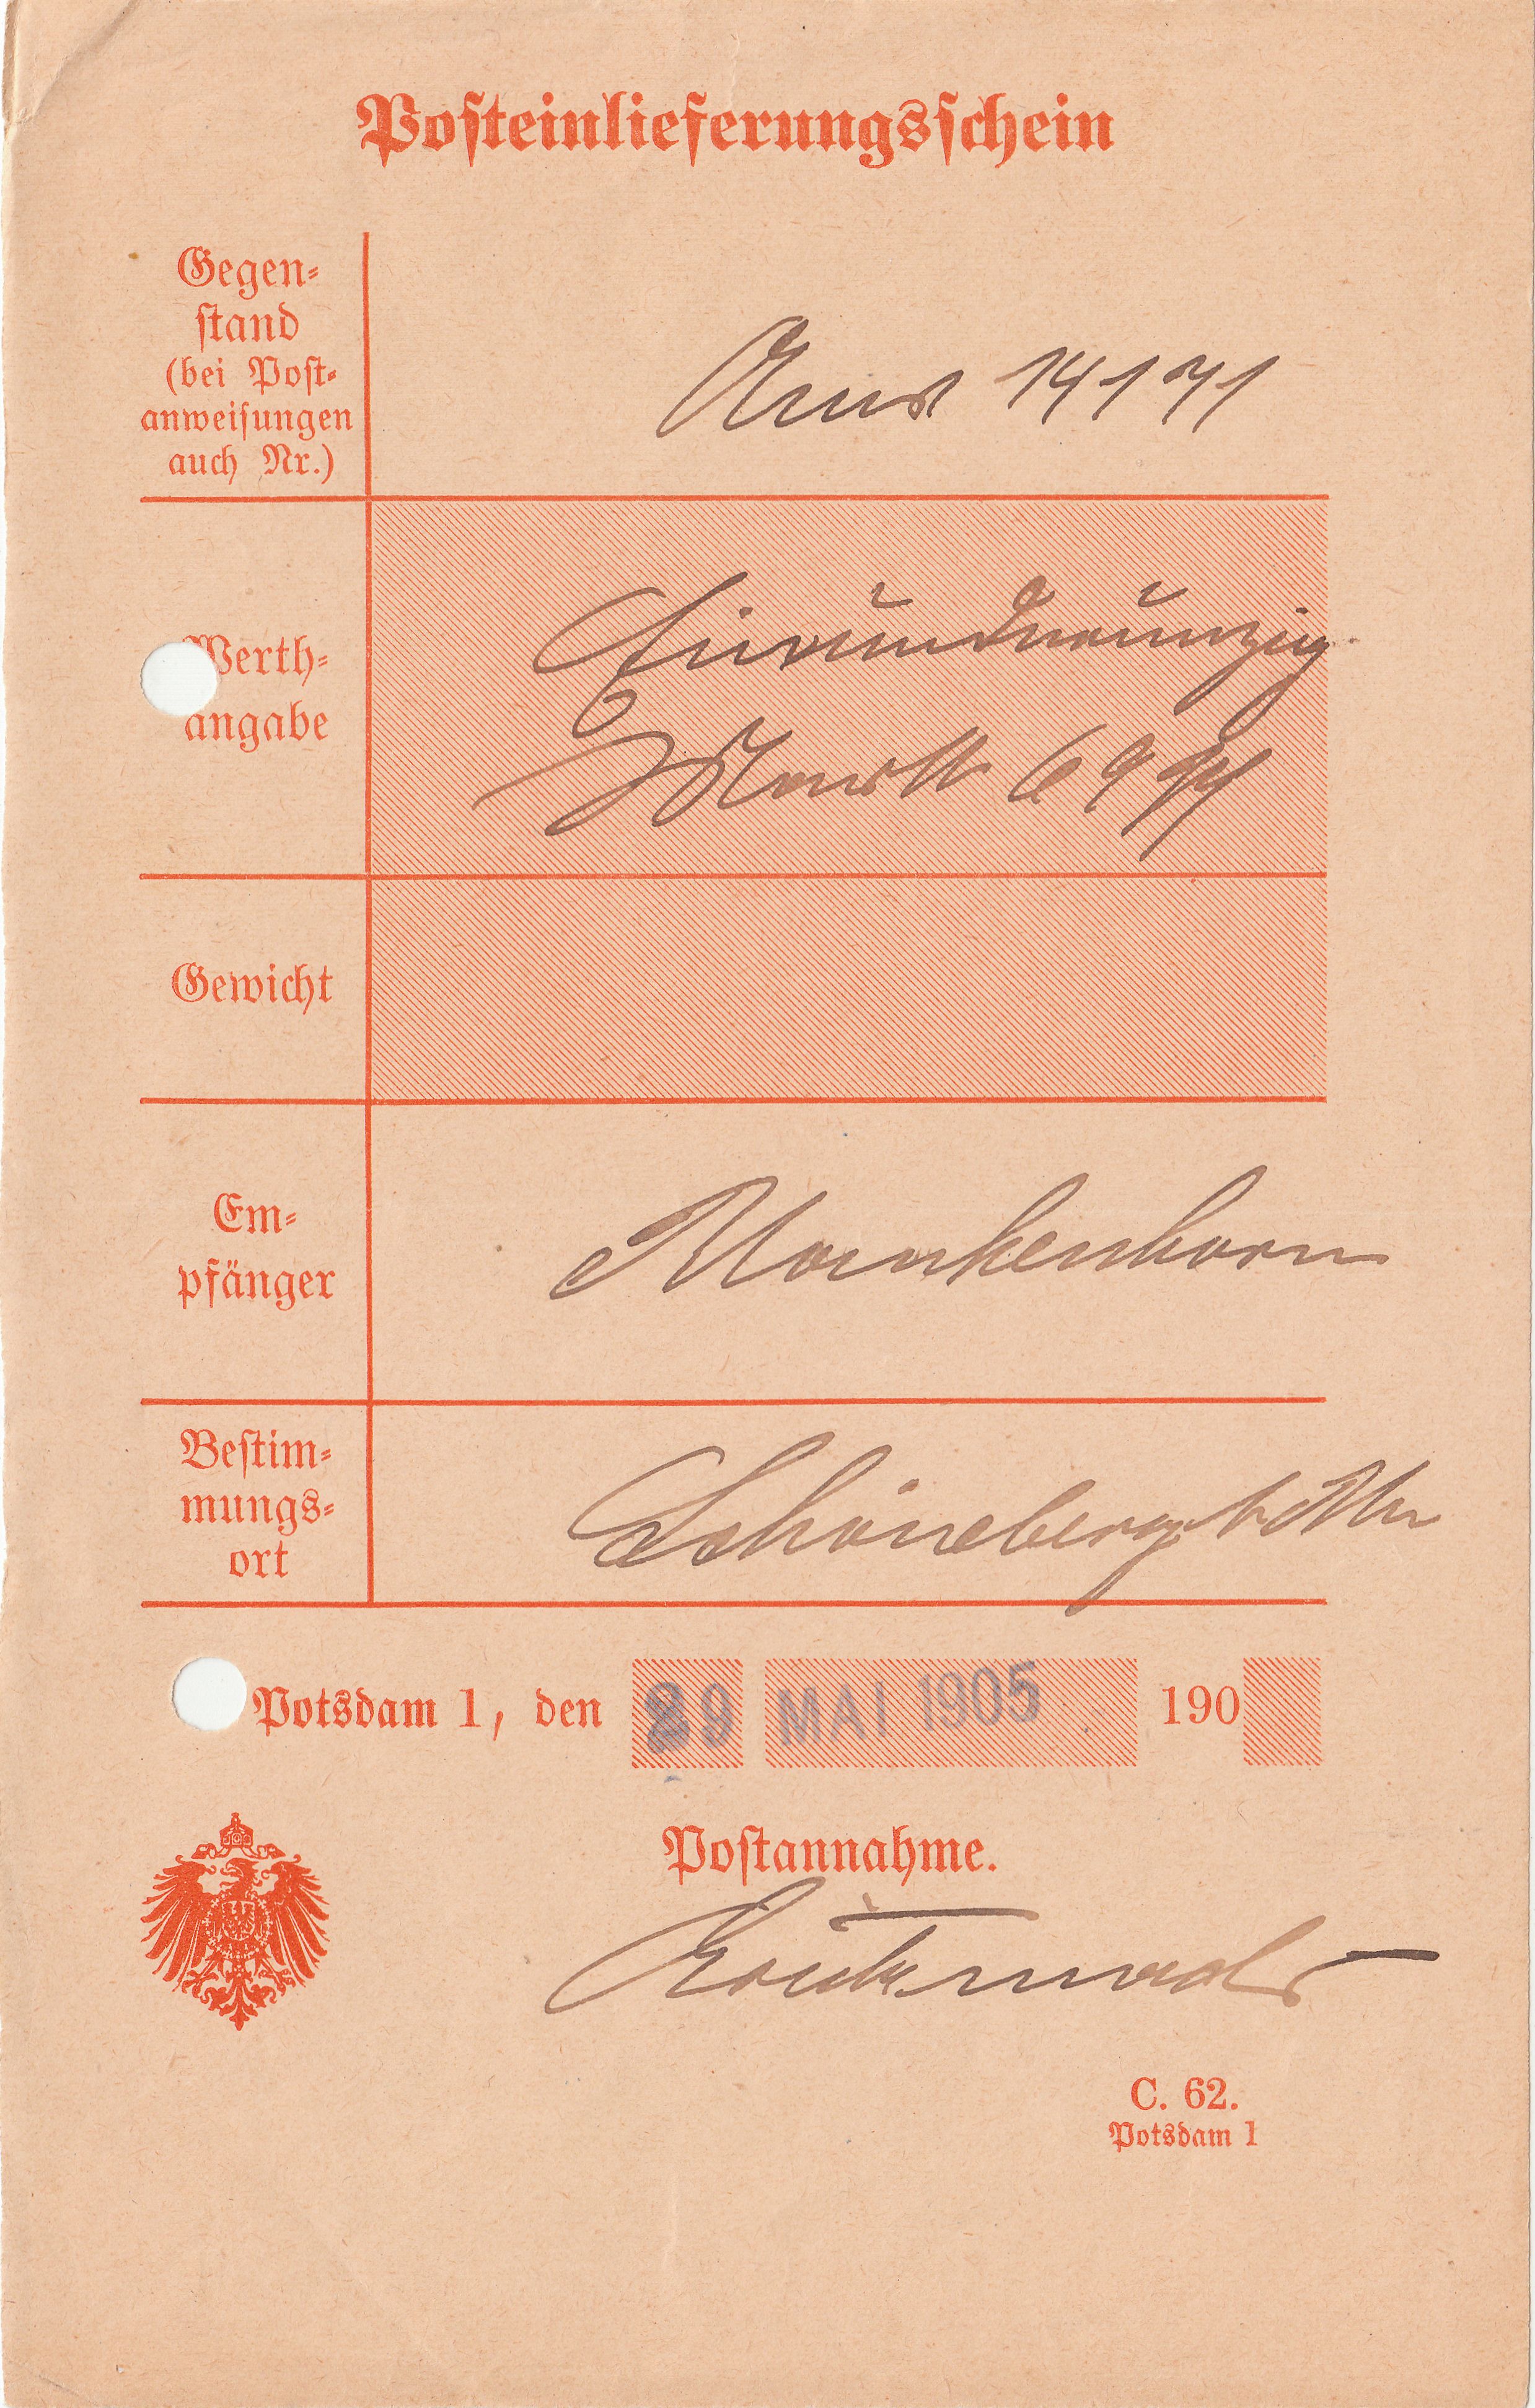 Posteinlieferungsschein
Gegen-
stand
(bei Post-
anweisungen
auch Nr.)
14171
Werth-
angabe
Einundneunzig
Mark 69 Pf
Gewicht
Em-
pfänger
Mankenhorn
Bestim-
mungs-
ort
Schöneberg b
Potsdam 1, den 29 MAI 1905 190
Postannahme.
C. 62.
Potsdam 1